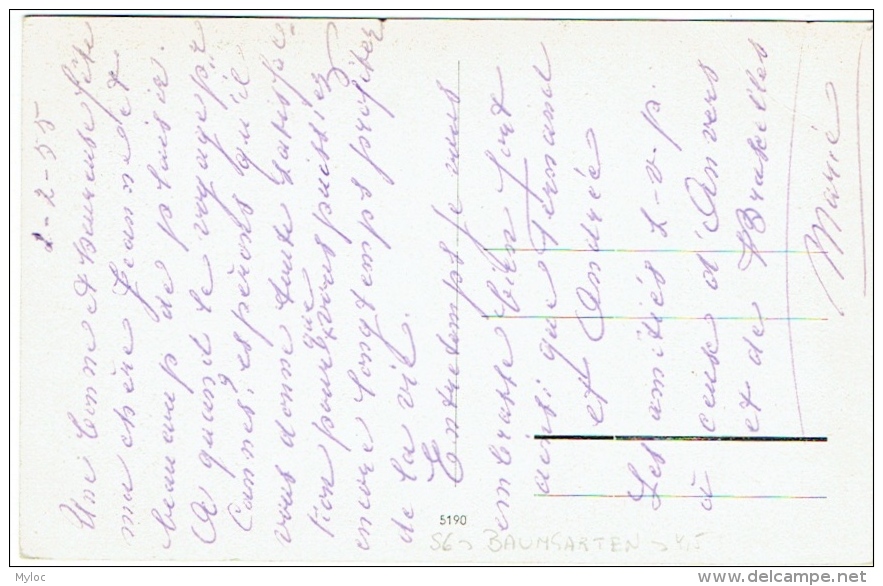 2-2-55
Une bonne & heureuse fête
ma chère Jeanne et
beaucoup de plaisir.
A quand le voyage pr
Cannes, espérons qu'il
vous donne toute satisfac-
tion pour que vous puissiez
encore longtemps profiter
de la vie.
Entretemps je vous
embrasse bien fort
ainsi que Fernand
et Andrée
Les amitiés s-v-p.
à ceux d'Anvers
et de Bruxelles
Marie
5190
S6 BAUMGARTEN 4,5
Myloc
delcampe.net